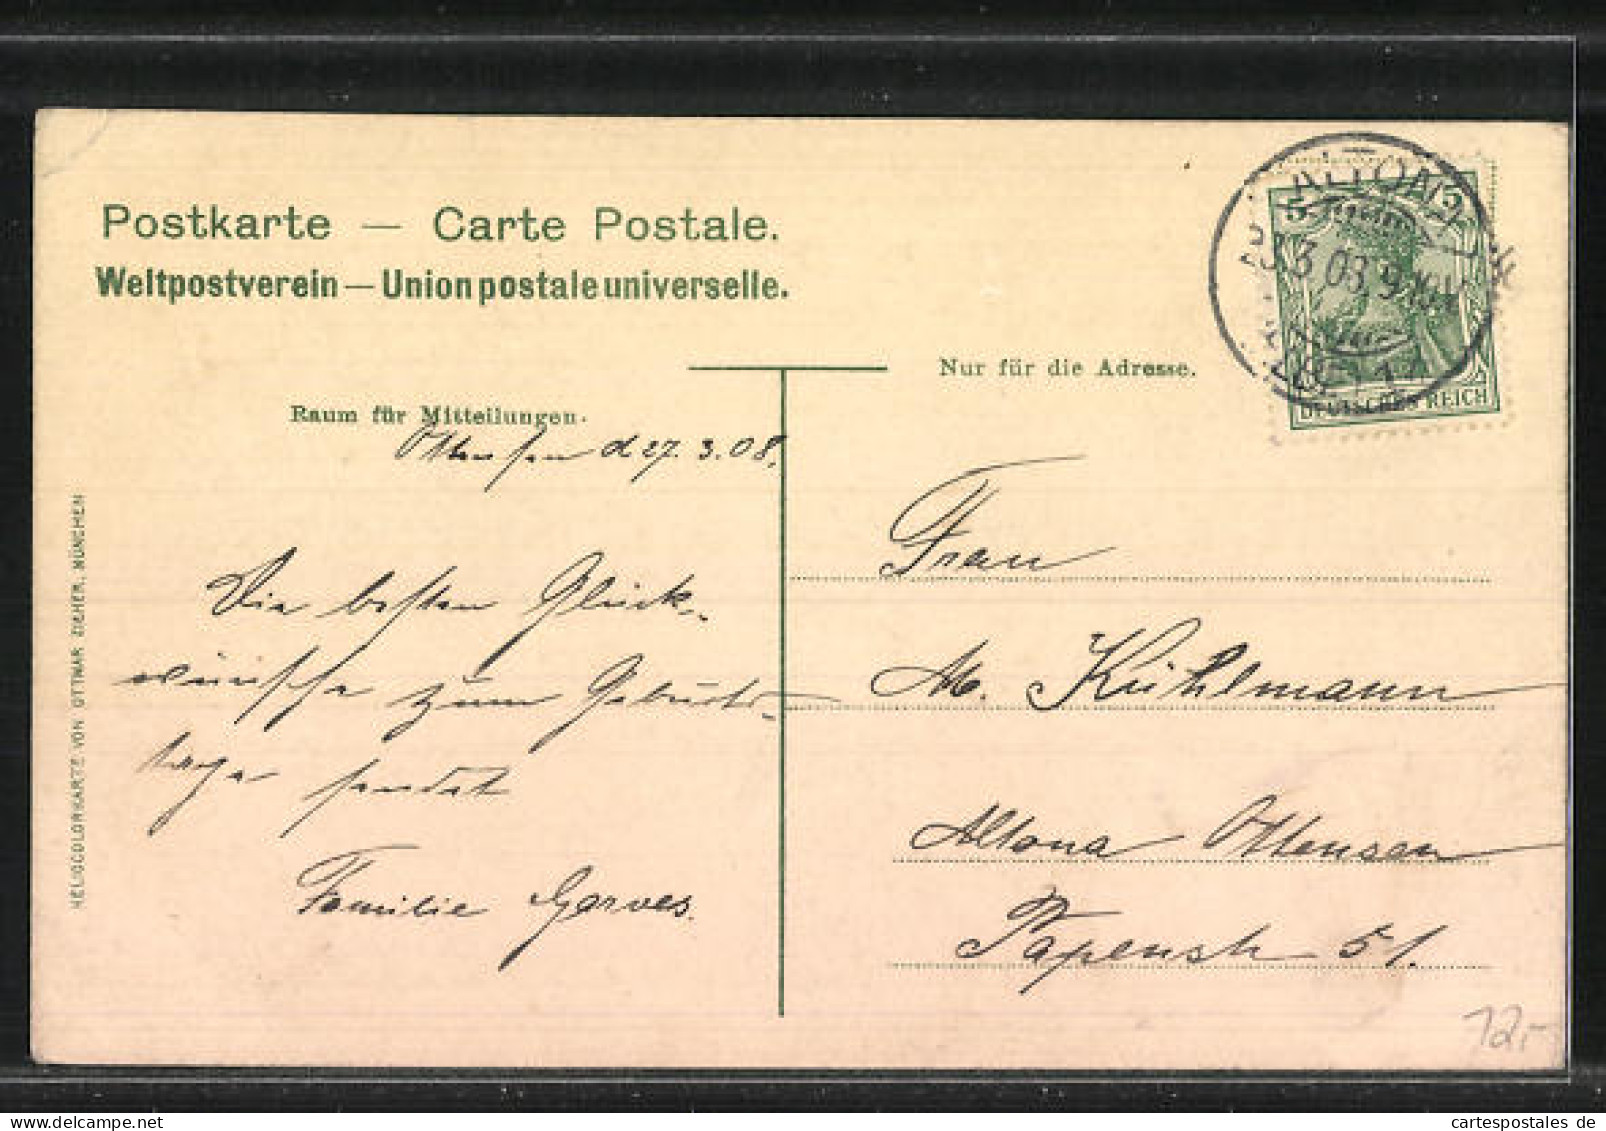 Postkarte — Carte Postale.
Weltpostverein — Union postale universelle.
Nur für die Adresse.
Raum für Mitteilungen.
Ottensen d 27. 3. 08.
Die besten Glück-
wünsche zum Geburts-
tage sendet
Familie Gerves.
Frau
M. Kühlmann
Altona Ottensen
Papenstr 51.
HELIOCOLORKARTE VON OTTMAR ZIEHER, MÜNCHEN
ALTONA
3 08 9
DEUTSCHES REICH
12,-
cartespostales de